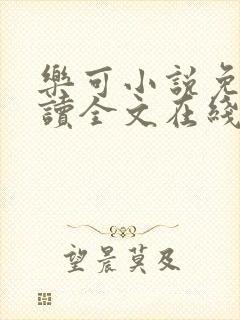 樂可小說免
讀全文在綫
望晨莫及